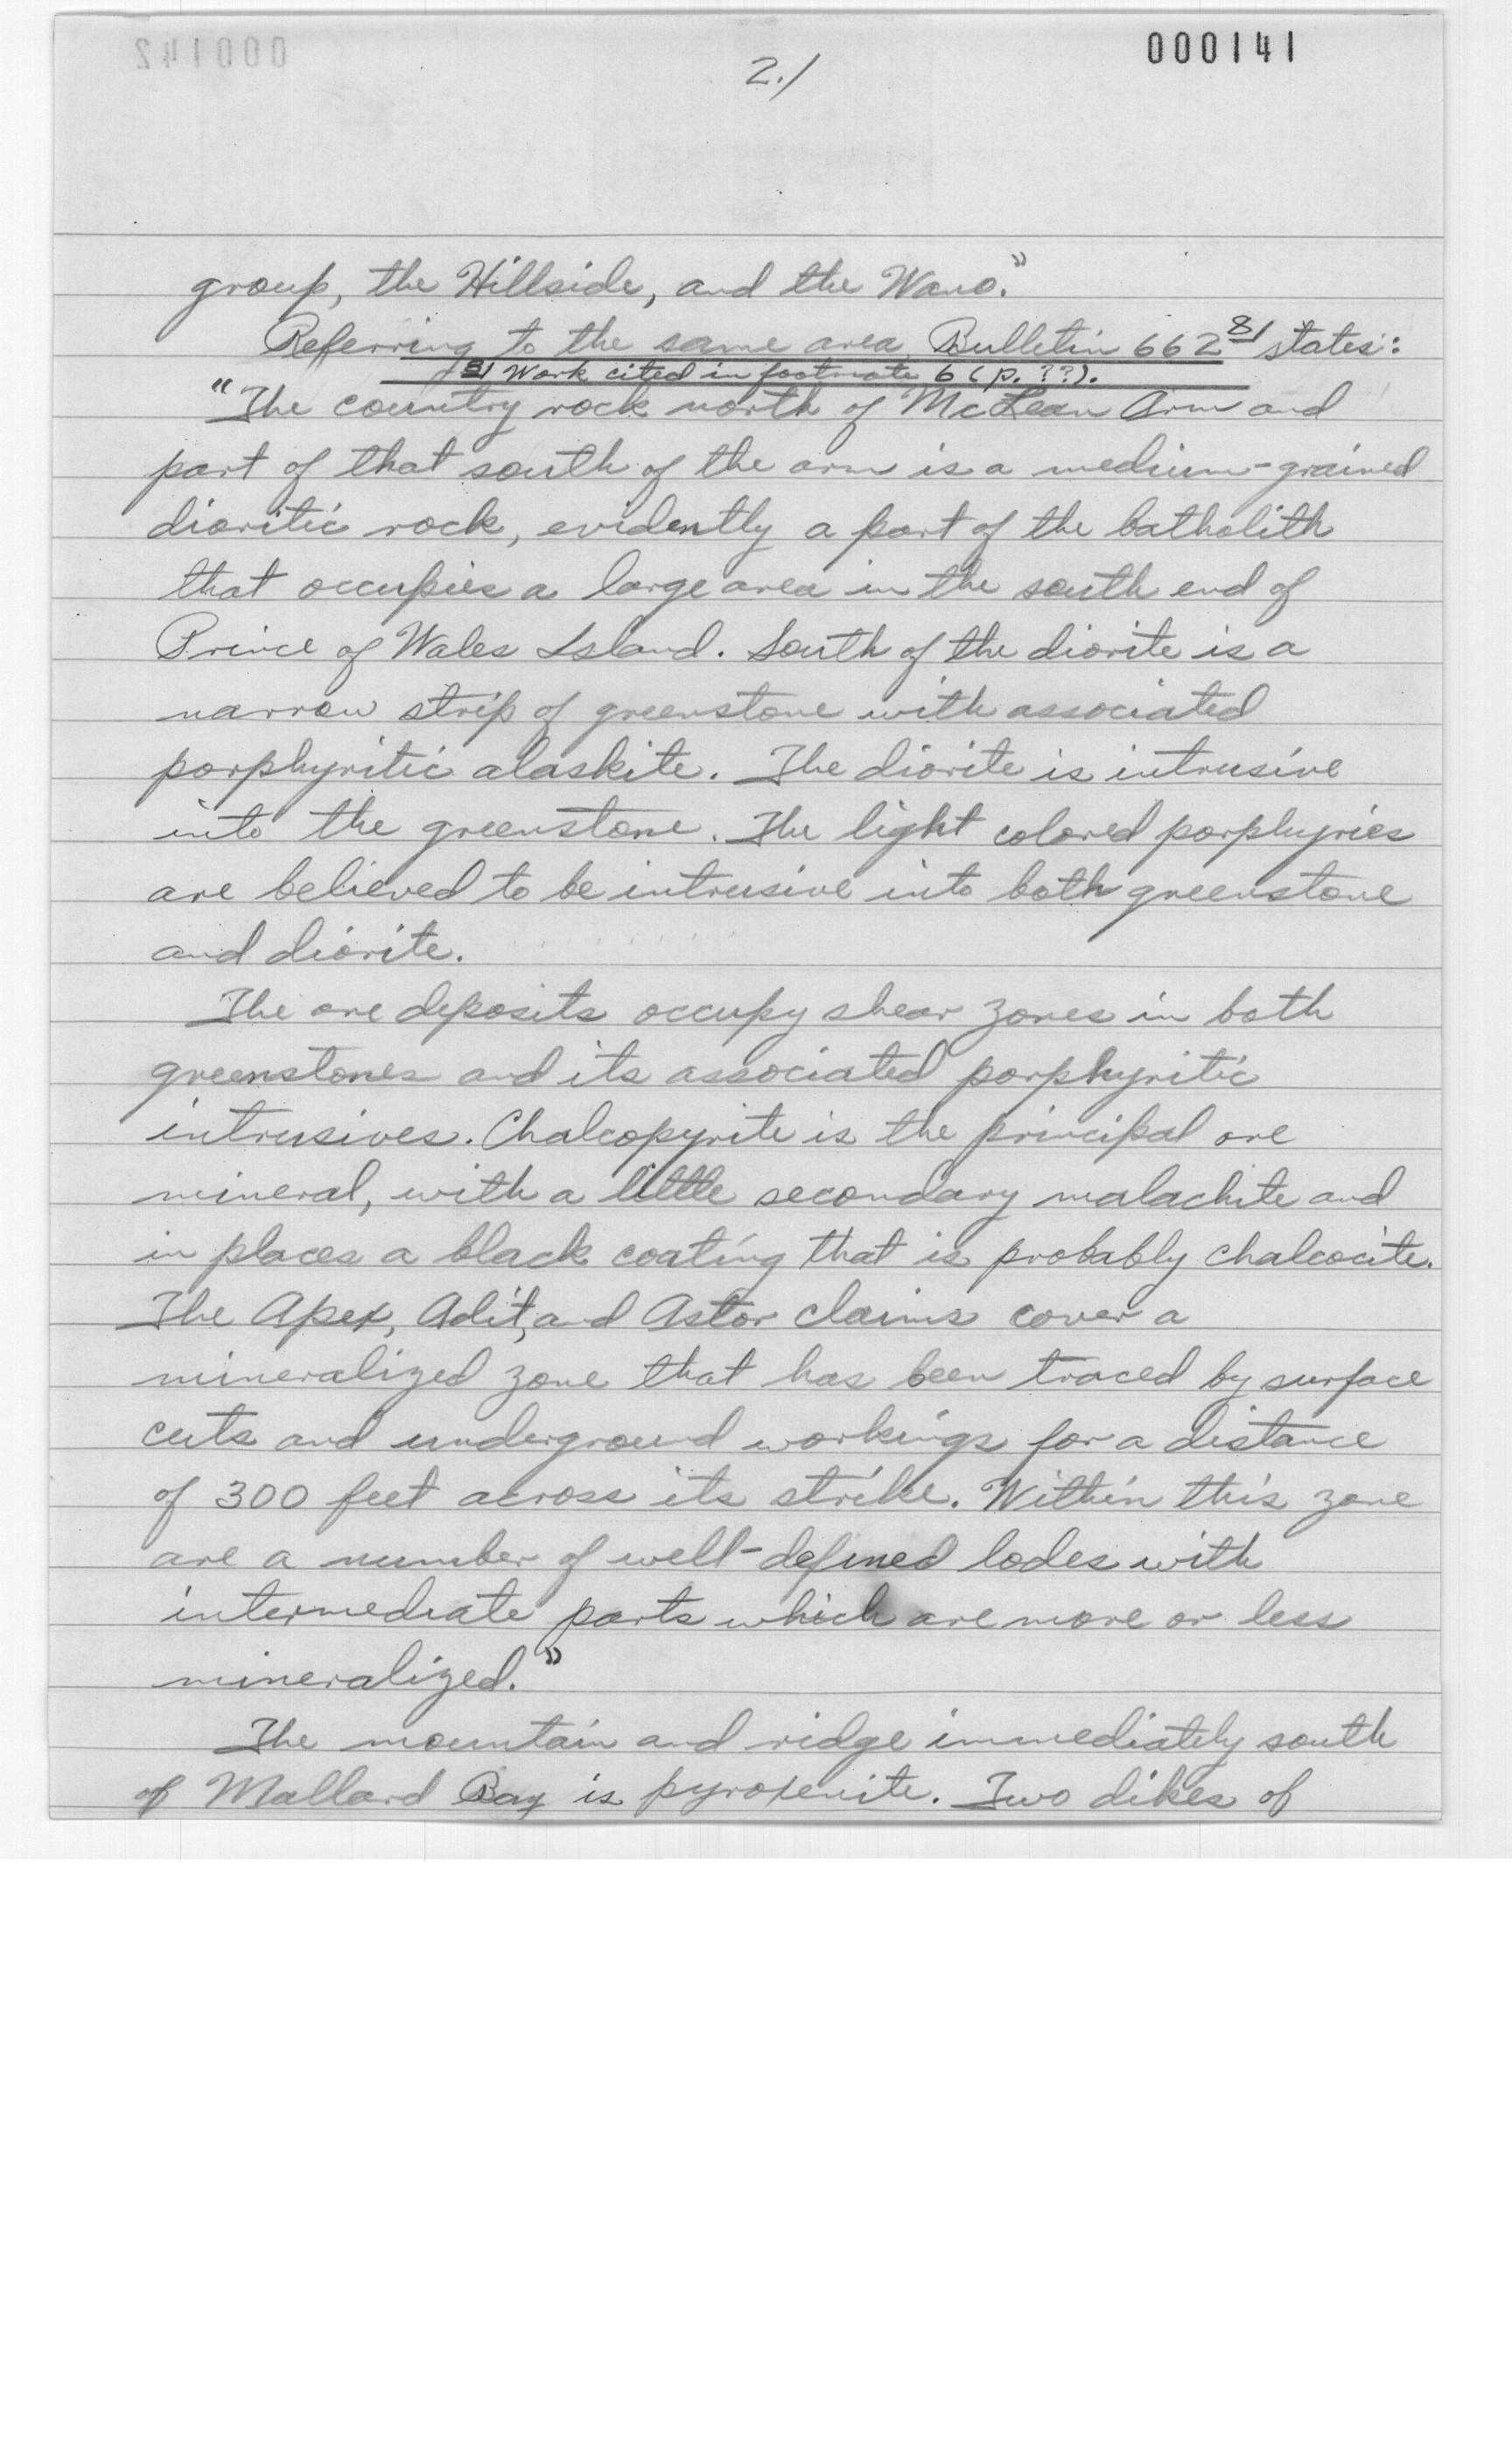 000141
2./
group, the Hillside, and the Wano."
Referring to the same area, Bulletin 662 8/ states:
8/ Work cited in footnote 6 (p. ??).
"The country rock north of McLean Arm and
part of that south of the arm is a medium-grained
dioritic rock, evidently a part of the batholith
that occupies a large area in the south end of
Prince of Wales Island. South of the diorite is a
narrow strip of greenstone with associated
porphyritic alaskite. The diorite is intrusive
into the greenstone. The light colored porphyries
are believed to be intrusive into both greenstone
and diorite.
The ore deposits occupy shear zones in both
greenstones and its associated porphyritic
intrusives. Chalcopyrite is the principal ore
mineral, with a little secondary malachite and
in places a black coating that is probably chalcocite.
The Apex, Adit, and Astor claims cover a
mineralized zone that has been traced by surface
cuts and underground workings for a distance
of 300 feet across its strike. Within this zone
are a number of well-defined lodes with
intermediate parts which are more or less
mineralized."
The mountain and ridge immediately south
of Mallard Bay is pyroxenite. Two dikes of